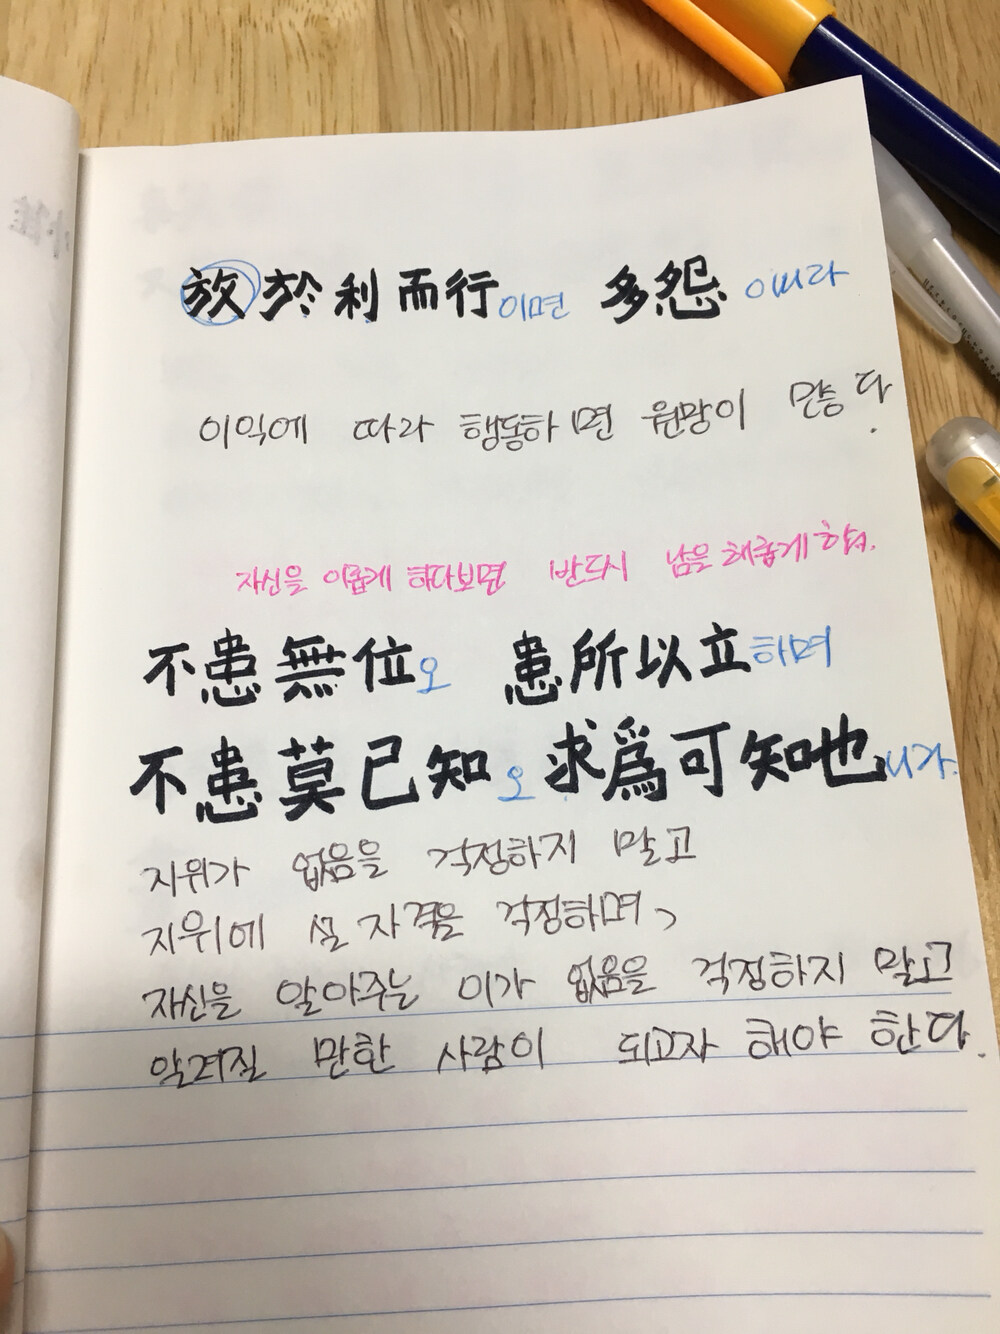 放於利而行이면 多怨이니라
이익에 따라 행동하면 원망이 많다.
자신을 이롭게 하다보면 반드시 남을 해롭게 하여.
不患無位오 患所以立하며
不患莫己知오 求爲可知也니라.
지위가 없음을 걱정하지 말고
지위에 설 자격을 걱정하며,
자신을 알아주는 이가 없음을 걱정하지 말고
알려질 만한 사람이 되고자 해야 한다.